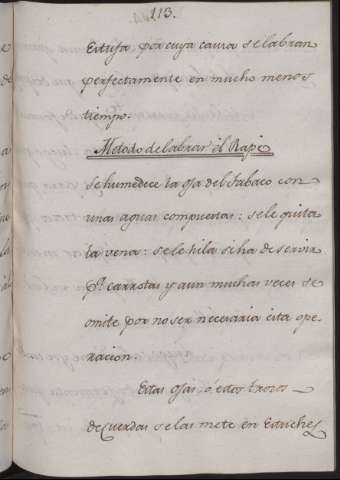 113.
Estufa, por cuya causa se labran
perfectamente en mucho menos
tiempo.
Metodo de labrar el Rapé
Se humedece la oja del Tabaco con
unas aguas compuestas: se le quita
la vena: se le hila si ha de servir
pª. carrotas y aun muchas veces se
omite por no ser necesaria esta ope-
racion.
Estas ojas, ó estos trozos
de cuerdas se las mete en Estuches